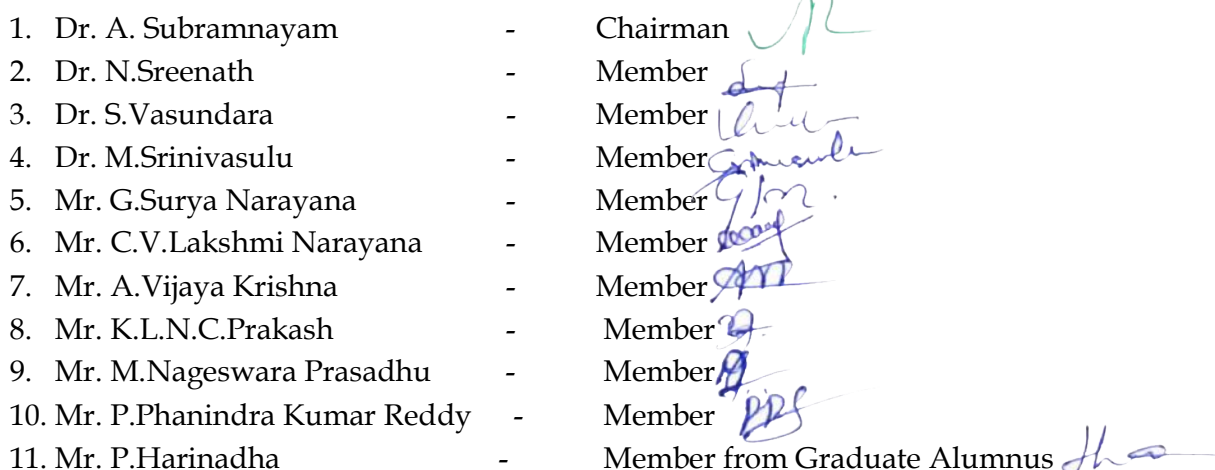 1. Dr. A. Subramnayam - Chairman
2. Dr. N.Sreenath - Member
3. Dr. S.Vasundara - Member
4. Dr. M.Srinivasulu - Member
5. Mr. G.Surya Narayana - Member
6. Mr. C.V.Lakshmi Narayana - Member
7. Mr. A.Vijaya Krishna - Member
8. Mr. K.L.N.C.Prakash - Member
9. Mr. M.Nageswara Prasadhu - Member
10. Mr. P.Phanindra Kumar Reddy - Member
11. Mr. P.Harinadha - Member from Graduate Alumnus